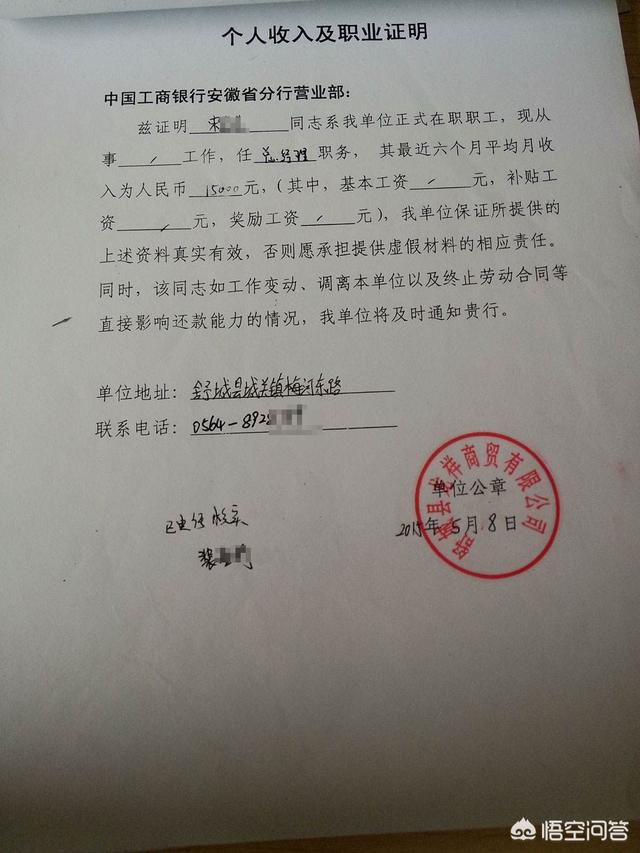 个人收入及职业证明
中国工商银行安徽省分行营业部：
兹证明 宋 同志系我单位正式在职职工，现从
事 / 工作，任 总经理 职务，其最近六个月平均月收
入为人民币 15000 元，（其中，基本工资 / 元，补贴工
资 / 元，奖励工资 / 元），我单位保证所提供的
上述资料真实有效，否则愿承担提供虚假材料的相应责任。
同时，该同志如工作变动、调离本单位以及终止劳动合同等
直接影响还款能力的情况，我单位将及时通知贵行。
单位地址：舒城县城关镇梅河东路
联系电话：0564-892
单位公章
2015年5月8日
县 祥商贸有限公司
已电话核实
悟空问答